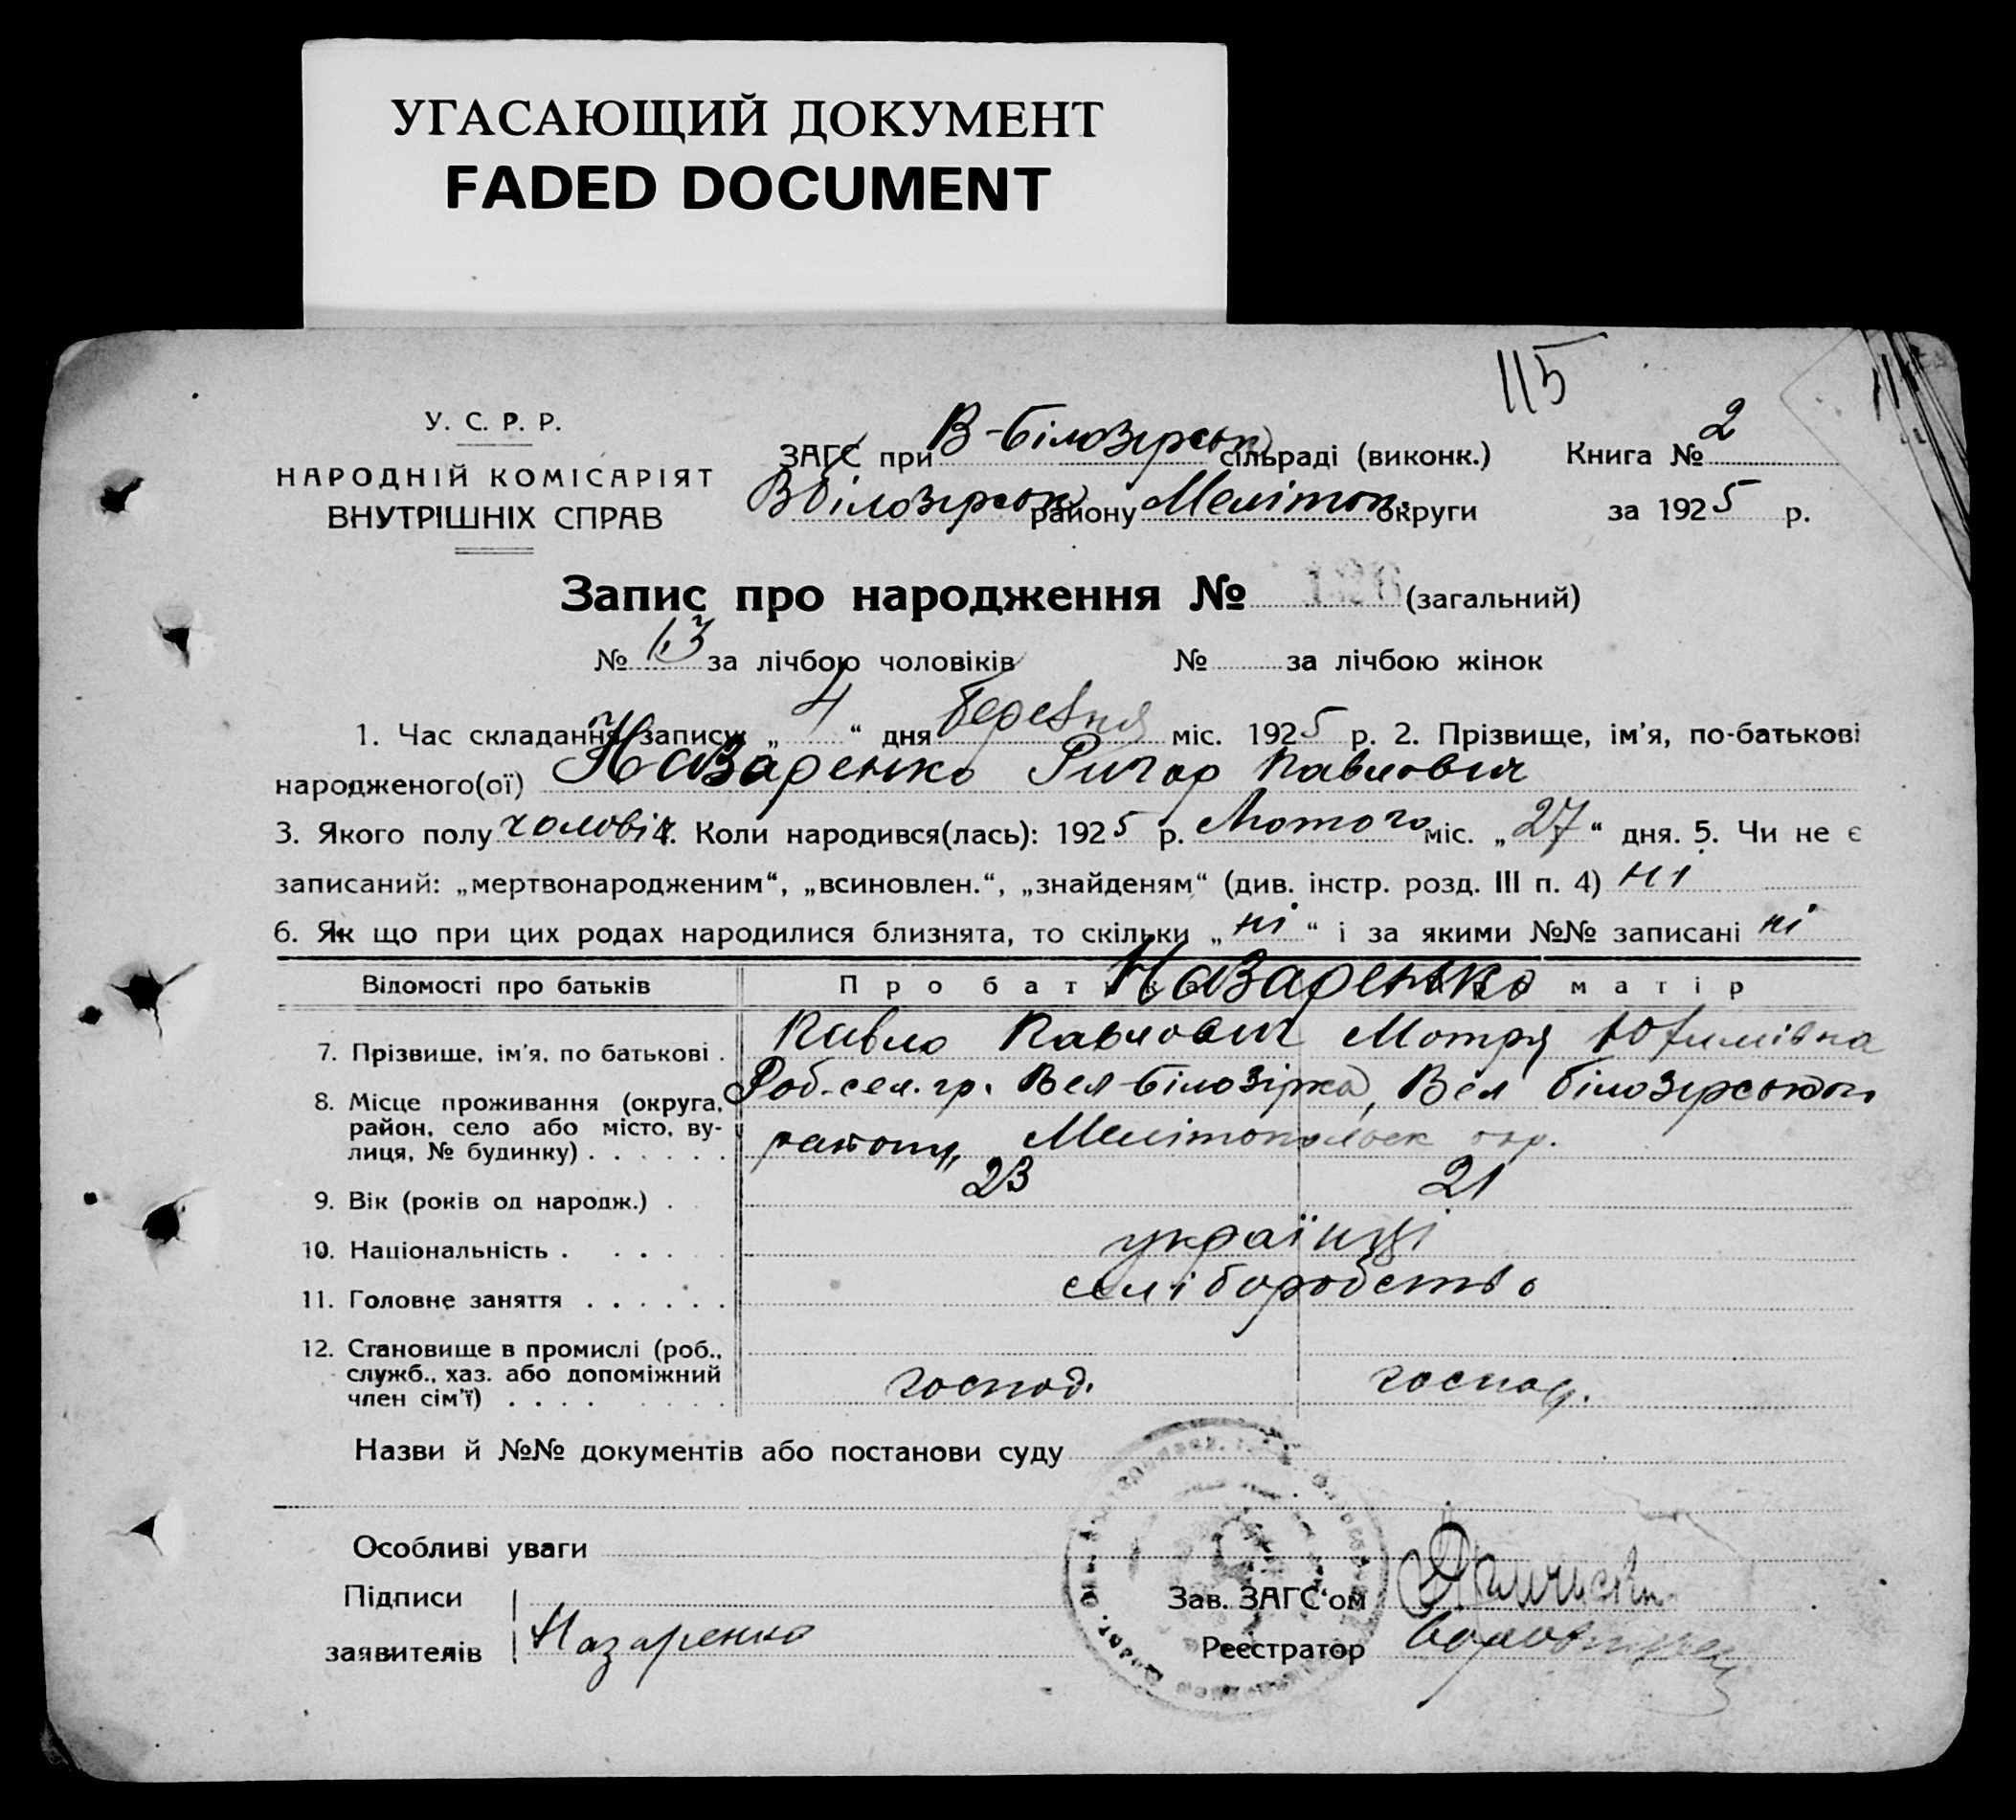 УГАСАЮЩИЙ ДОКУМЕНТ
FADED DOCUMENT
115
У. С. Р. Р.
НАРОДНІЙ КОМІСАРІЯТ
ВНУТРІШНІХ СПРАВ
ЗАГС при В-Білозірськ сільраді (виконк.) Книга № 2
ВБілозірськ району Мелітоп. округи за 1925 р.
Запис про народження № 126 (загальний)
№ 63 за лічбою чоловіків № за лічбою жінок
1. Час складання запису „4“ дня березня міс. 1925 р. 2. Прізвище, ім'я, по-батькові
народженого(ої) Назаренко Григор Павлович
3. Якого полу чоловіч. 4. Коли народився(лась): 1925 р. Лютого міс. „27“ дня. 5. Чи не є
записаний: „мертвонародженим“, „всиновлен.“, „знайденям“ (див. інстр. розд. III п. 4) ні
6. Як що при цих родах народилися близнята, то скільки „ні“ і за якими №№ записані ні
Відомості про батьків Про батька Назаренко матір
7. Прізвище, ім'я, по батькові . Павло Павлович Мотря Юхимівна
8. Місце проживання (округа, район, село або місто, вулиця, № будинку) . . . . . . Роб-сел. гр. Вел-Білозірка, Вел Білозірського
району, Мелітопольск окр.
9. Вік (років од народж.) . 23 21
10. Національність . . . . українці
11. Головне заняття . . . . . . селіборобство
12. Становище в промислі (роб., служб., хаз. або допоміжний член сім'ї) . . . . . . . . господ. господ.
Назви й №№ документів або постанови суду
Особливі уваги
Підписи
заявителів Назаренко
Зав. ЗАГС'ом
Реєстратор